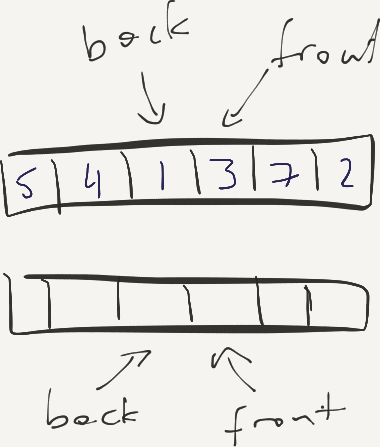 back front
5 4 1 3 7 2
back front